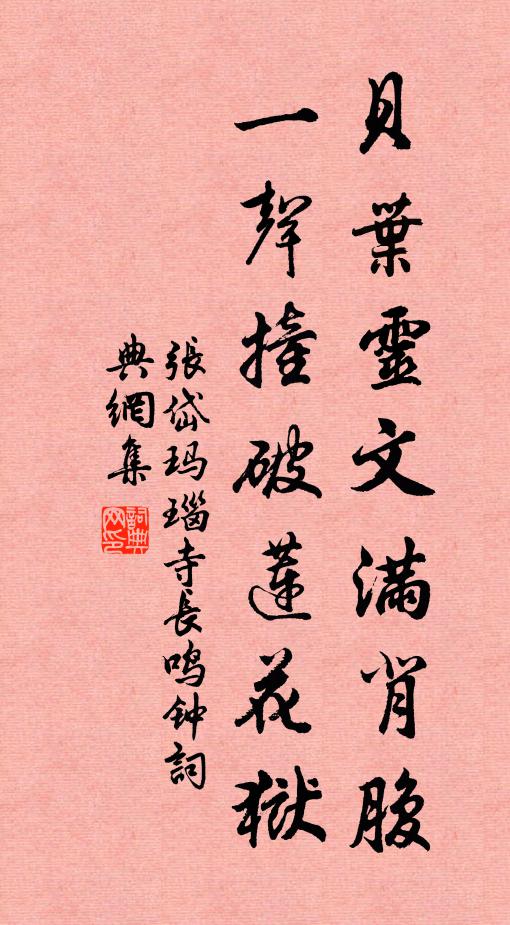 貝葉靈文滿背腹
一聲撞破蓮花獄
張岱玛瑙寺長鳴钟詞
典網集
詞典
网印